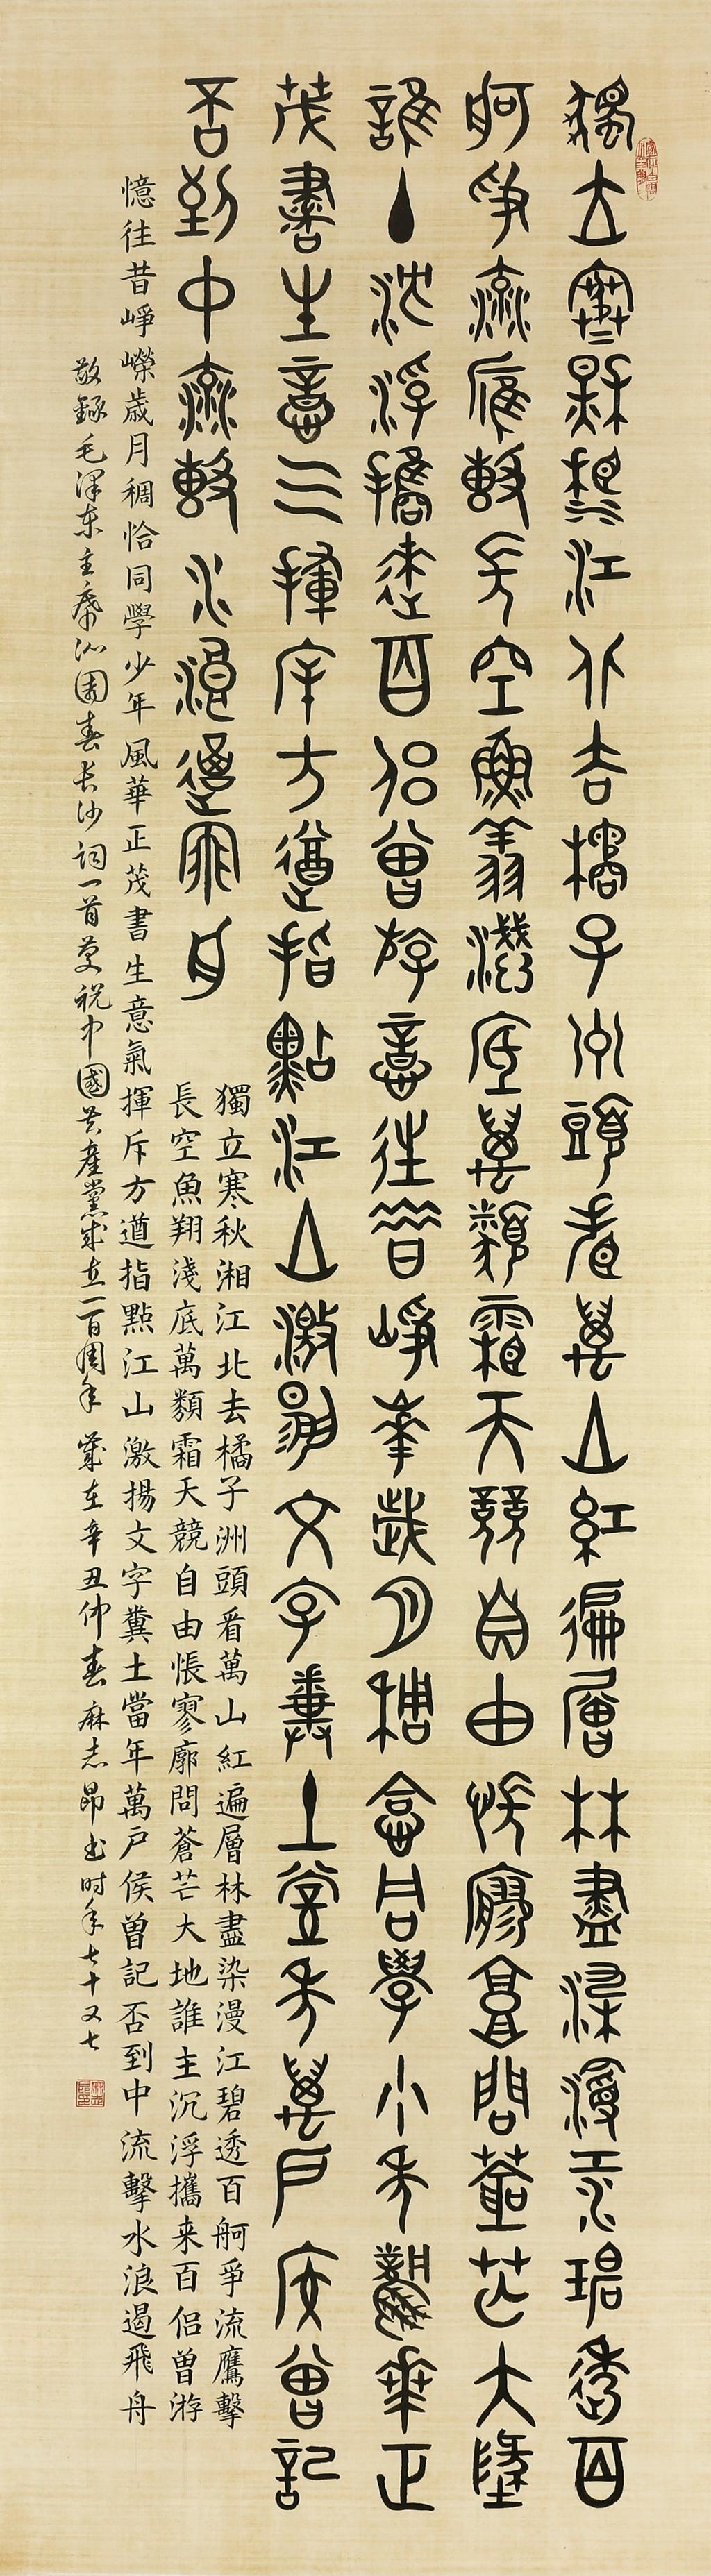 獨立寒秋湘江北去橘子州頭看萬山紅遍層林盡染漫江碧透百
舸爭流鷹擊長空魚翔淺底萬類霜天競自由悵寥廓問蒼芒大地
誰主沉浮攜來百侶曾游意往昔崢嶸歲月稠恰同學少年風華正
茂書生意氣揮斥方遒指點江山激揚文字糞土當年萬戶侯曾記
否到中流擊水浪遏飛舟
獨立寒秋湘江北去橘子洲頭看萬山紅遍層林盡染漫江碧透百舸爭流鷹擊
長空魚翔淺底萬類霜天競自由悵寥廓問蒼芒大地誰主沉浮攜来百侣曾游
憶往昔崢嶸歲月稠恰同學少年風華正茂書生意氣揮斥方遒指點江山激揚文字糞土當年萬戶侯曾記否到中流擊水浪遏飛舟
敬錄毛澤东主席沁園春长沙词一首慶祝中國共產黨成立一百周年歲在辛丑仲春麻志昂书时年七十又七